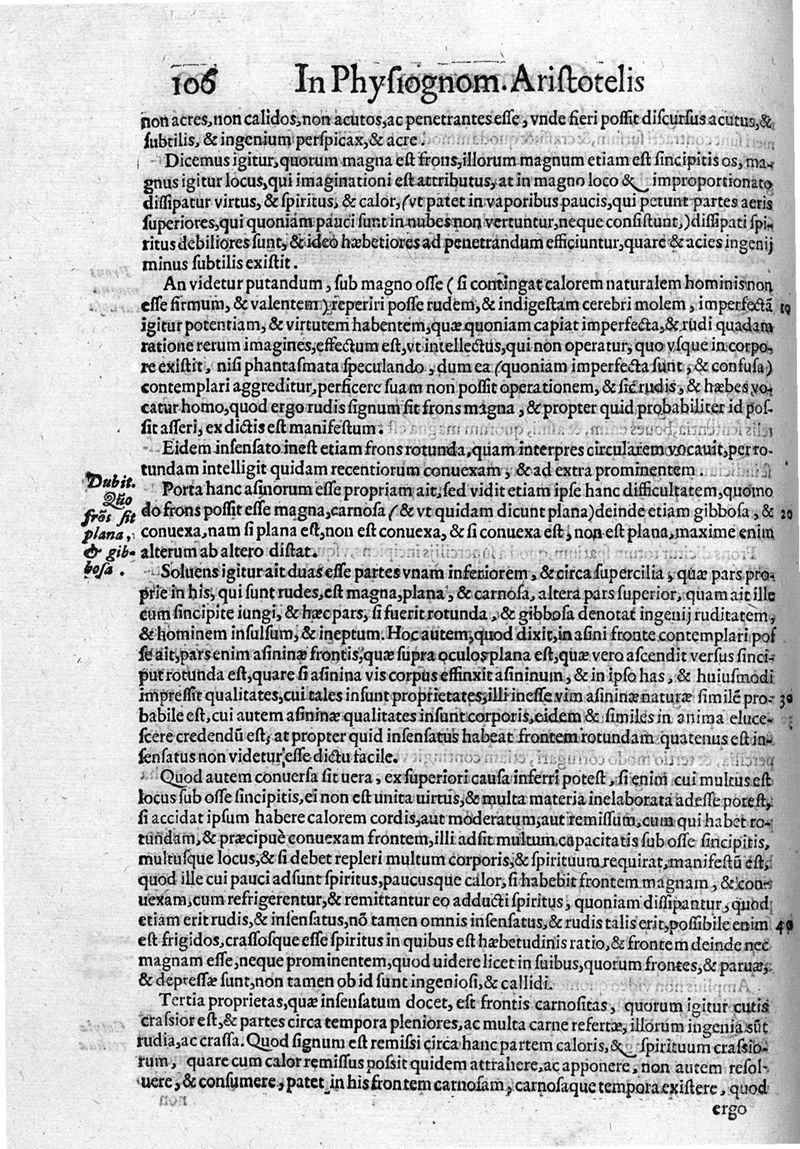 106 In Physiognom. Aristotelis
non acres, non calidos, non acutos, ac penetrantes esse, vnde fieri possit discursus acutus, &
subtilis, & ingenium perspicax, & acre.
Dicemus igitur, quorum magna est frons, illorum magnum etiam est sincipitis os, ma-
gnus igitur locus, qui imaginationi est attributus, at in magno loco & improportionato
dissipatur virtus, & spiritus, & calor, (vt patet in vaporibus paucis, qui petunt partes aeris
superiores, qui quoniam pauci sunt in nubes non vertuntur, neque consistunt,) dissipati spi-
ritus debiliores sunt, & ideo hæbetiores ad penetrandum efficiuntur, quare & acies ingenij
minus subtilis existit.
An videtur putandum, sub magno osse (si contingat calorem naturalem hominis non
esse firmum, & valentem) reperiri posse rudem, & indigestam cerebri molem, imperfectā 10
igitur potentiam, & virtutem habentem, quæ quoniam capiat imperfecta, & rudi quadam
ratione rerum imagines, effectum est, vt intellectus, qui non operatur, quo vsque in corpo-
re existit, nisi phantasmata speculando, dum ea (quoniam imperfecta sunt, & confusa)
contemplari aggreditur, perficere suam non possit operationem, & sic rudis, & hæbes vo-
catur homo, quod ergo rudis signum sit frons magna, & propter quid probabiliter id pos-
sit asseri, ex dictis est manifestum.
Eidem insensato inest etiam frons rotunda, quam interpres circularem vocauit, per ro-
tundam intelligit quidam recentiorum conuexam, & ad extra prominentem.
Dubit.
Quō
frōs sit
plana,
& gib-
bosa.
Porta hanc asinorum esse propriam ait, sed vidit etiam ipse hanc difficultatem, quomo
do frons possit esse magna, carnosa (& vt quidam dicunt plana) deinde etiam gibbosa, & 20
conuexa, nam si plana est, non est conuexa, & si conuexa est, non est plana, maxime enim
alterum ab altero distat.
Soluens igitur ait duas esse partes vnam inferiorem, & circa supercilia, quæ pars pro-
prie in his, qui sunt rudes, est magna, plana, & carnosa, altera pars superior, quam ait ille
cum sincipite iungi, & hæc pars, si fuerit rotunda, & gibbosa denotat ingenij ruditatem,
& hominem insulsum, & ineptum. Hoc autem, quod dixit, in asini fronte contemplari pos
se ait, pars enim asininæ frontis, quæ supra oculos plana est, quæ vero ascendit versus sinci-
put rotunda est, quare si asinina vis corpus effinxit asininum, & in ipso has, & huiusmodi
impressit qualitates, cui tales insunt proprietates, illi inesse vim asininæ naturæ similē pro- 30
babile est, cui autem asininæ qualitates insunt corporis, eidem & similes in anima eluce-
scere credendū est, at propter quid insensatus habeat frontem rotundam quatenus est in-
sensatus non videtur esse dictu facile.
Quod autem conuersa sit uera, ex superiori causa inferri potest, si enim cui multus est
locus sub osse sincipitis, ei non est unita uirtus, & multa materia inelaborata adesse potest,
si accidat ipsum habere calorem cordis, aut moderatum, aut remissum, cum qui habet ro-
tundam, & præcipuè conuexam frontem, illi adsit multum capacitatis sub osse sincipitis,
multusque locus, & si debet repleri multum corporis, & spirituum requirat, manifestū est,
quod ille cui pauci adsunt spiritus, paucusque calor, si habebit frontem magnam, & con-
uexam, cum refrigerentur, & remittantur eo adducti spiritus, quoniam dissipantur, quod
etiam erit rudis, & insensatus, nō tamen omnis insensatus, & rudis talis erit, possibile enim 40
est frigidos, crassosque esse spiritus in quibus est hæbetudinis ratio, & frontem deinde nec
magnam esse, neque prominentem, quod uidere licet in suibus, quorum frontes, & paruæ,
& depressæ sunt, non tamen ob id sunt ingeniosi, & callidi.
Tertia proprietas, quæ insensatum docet, est frontis carnositas, quorum igitur cutis
crassior est, & partes circa tempora pleniores, ac multa carne refertæ, illorum ingenia sūt
rudia, ac crassa. Quod signum est remissi circa hanc partem caloris, & spirituum crassio-
rum, quare cum calor remissus possit quidem attrahere, ac apponere, non autem resol-
uere, & consumere, patet in his frontem carnosam, carnosaque tempora existere, quod
ergo